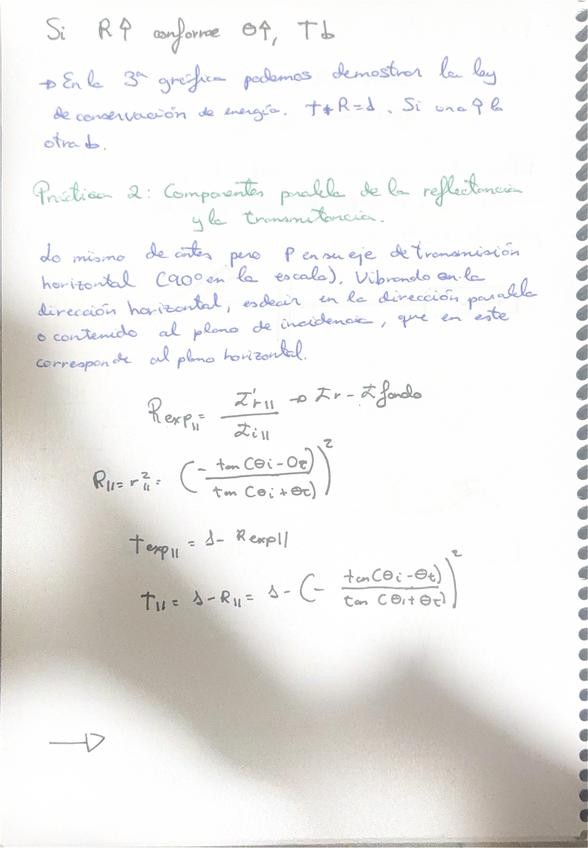 Si R↑ conforme θ↑, T↓
→ En la 3ª gráfica podemos demostrar la ley
de conservación de energía. T+R=1. Si una ↑ la
otra ↓.
Práctica 2: Componentes paralela de la reflectancia
y la transmitancia.
Lo mismo de antes pero P en su eje de transmisión
horizontal (90º en la escala). Vibrando en la
dirección horizontal, es decir en la dirección paralela
o contenido al plano de incidencia, que en este
corresponde al plano horizontal.
Rexp∥ = I'r∥ / Ii∥ → Ir - I fondo
R∥ = r²∥ = (- tan(θi-θt) / tan(θi+θt))²
Texp∥ = 1 - Rexp∥
T∥ = 1 - R∥ = 1 - (- tan(θi-θt) / tan(θi+θt))²
→